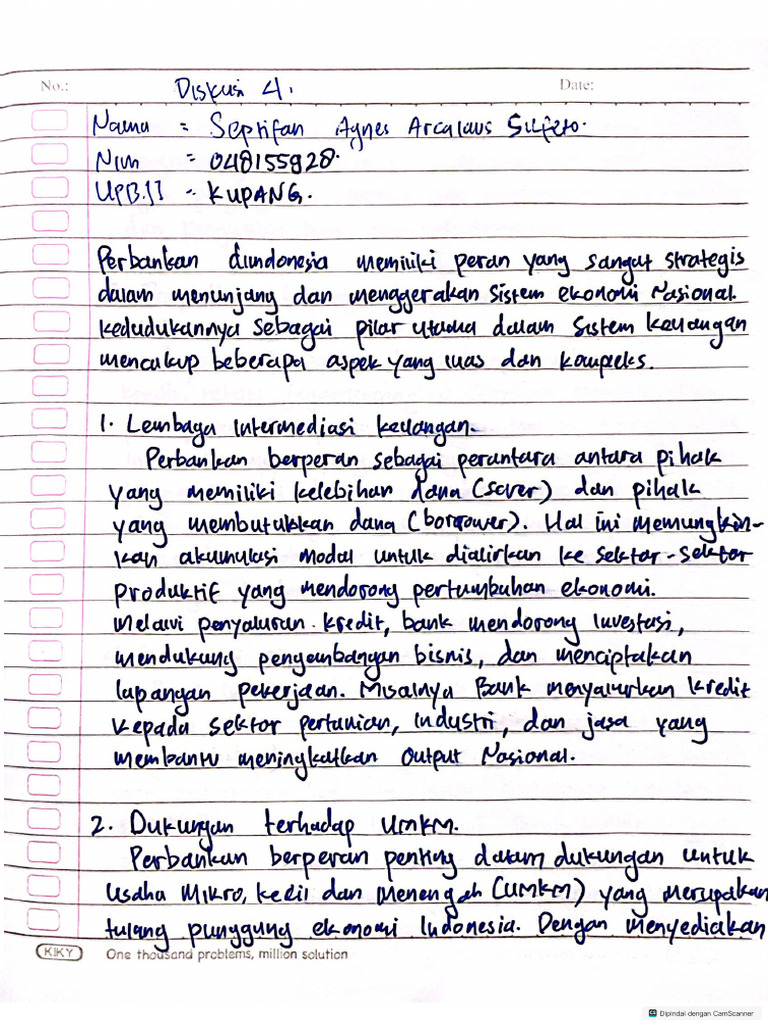 No.: Diskusi 4. Date:
Nama = Septifan Agnes Arcalaus Sufeto.
Nim = 048155928.
UPBJJ = KUPANG.
Perbankan diindonesia memiliki peran yang sangat strategis
dalam menunjang dan menggerakan sistem ekonomi Nasional.
kedudukannya sebagai pilar utama dalam sistem keuangan
mencakup beberapa aspek yang luas dan kompleks.
1. Lembaga Intermediasi keuangan.
Perbankan berperan sebagai perantara antara pihak
yang memiliki kelebihan dana (saver) dan pihak
yang membutuhkan dana (borrower). Hal ini memungkin-
kan akumulasi modal untuk dialirkan ke sektor-sektor
produktif yang mendorong pertumbuhan ekonomi.
melalui penyaluran kredit, bank mendorong investasi,
mendukung pengembangan bisnis, dan menciptakan
lapangan pekerjaan. Misalnya Bank menyalurkan kredit
kepada sektor pertanian, industri, dan jasa yang
membantu meningkatkan output Nasional.
2. Dukungan terhadap UMKM.
Perbankan berperan penting dalam dukungan untuk
Usaha Mikro, kecil dan Menengah (UMKM) yang merupakan
tulang punggung ekonomi Indonesia. Dengan menyediakan
KIKY One thousand problems, million solution
CS Dipindai dengan CamScanner